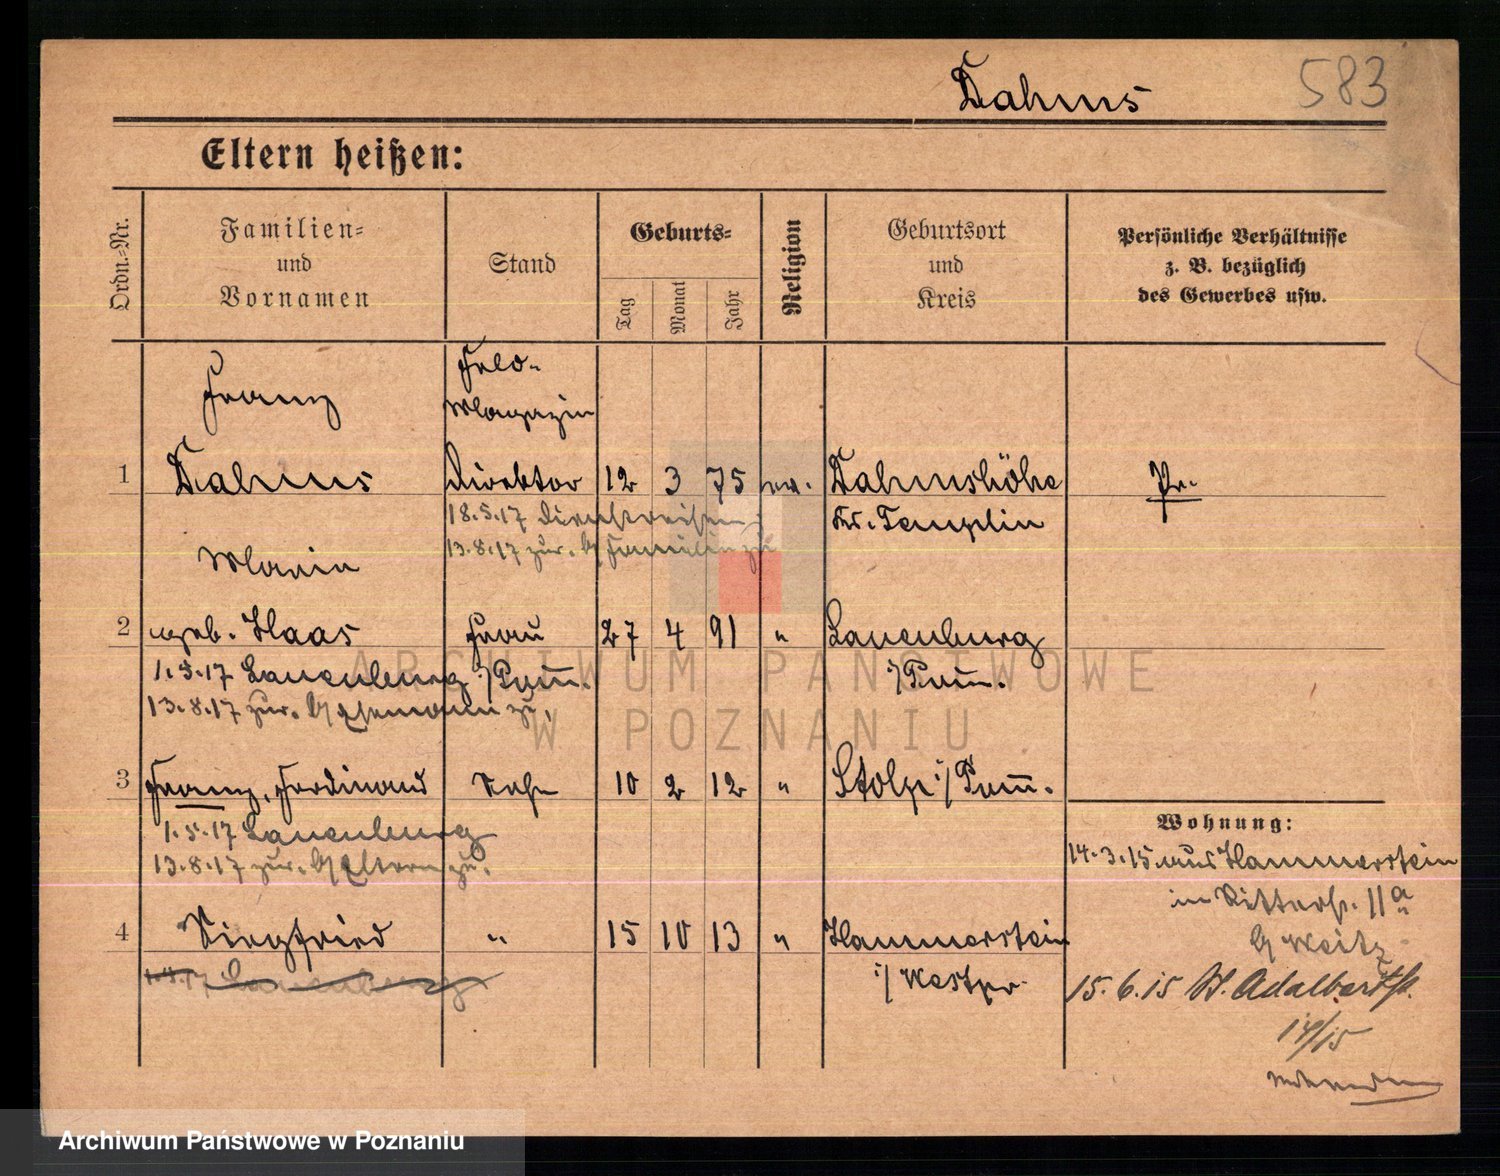 Dahms 583
Eltern heißen:
Ordn.-Nr.
Familien-
und
Vornamen
Stand
Geburts-
Tag
Monat
Jahr
Religion
Geburtsort
und
Kreis
Persönliche Verhältnisse
z. B. bezüglich
des Gewerbes usw.
Franz
Feld-
Magazin
1 Dahms Direktor 12 3 75 ev. Dahmshöhe Pr.
18.5.17
Kr. Templin
Marie
13.8.17 zur. Familie
2 geb. Haas Frau 27 4 91 " Lauenburg
1.5.17 Lauenburg i/Pom.
i/Pom.
13.8.17 zur. Ehemann
3 Franz, Ferdinand Sohn 10 2 12 " Stolp i/Pom.
1.5.17 Lauenburg
13.8.17 zur. Eltern
Wohnung:
14.3.15 aus Hammerstein
in Ritterstr. 11a
b/ Weitz
4 Siegfried " 15 10 13 " Hammerstein
i/Westpr.
Lauenburg
15.6.15 St. Adalbertstr.
14/15
ARCHIWUM PAŃSTWOWE
W POZNANIU
Archiwum Państwowe w Poznaniu